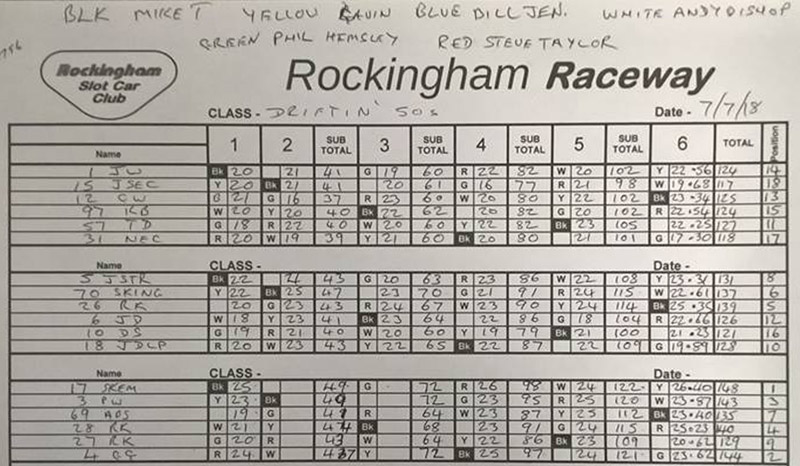 BLK MIKE T YELLOW GAVIN BLUE BILL JEN. WHITE ANDY BISHOP
GREEN PHIL HEMSLEY RED STEVE TAYLOR
Rockingham
Slot Car
Club
Rockingham Raceway
CLASS - DRIFTIN' 50s Date - 7/7/18
Name 1 2 SUB TOTAL 3 SUB TOTAL 4 SUB TOTAL 5 SUB TOTAL 6 TOTAL Position
1 JW Bk 20 21 41 G 19 60 R 22 82 W 20 102 Y 22.56 124 14
15 JSEC Y 20 Bk 21 41 20 61 G 16 77 R 21 98 W 19.68 117 18
12 CW 21 G 16 37 R 23 60 W 20 80 Y 22 102 Bk 23.34 125 13
97 KB W 20 Y 20 40 Bk 22 62 20 82 G 20 102 R 22.54 124 15
57 TD G 18 R 22 40 W 20 60 Y 22 82 Bk 23 105 22.25 127 11
31 NEC R 20 W 19 39 Y 21 60 Bk 20 80 21 101 G 17.30 118 17
CLASS - Date -
5 JSTR Bk 22 43 G 20 63 R 23 86 W 22 108 131 8
70 SKING Y 22 Bk 25 47 23 70 G 21 91 R 24 115 W 22.61 137 6
26 RK 20 G 23 43 R 24 67 W 23 90 Y 24 114 Bk 139 5
6 JD W 18 Y 23 41 Bk 23 64 22 86 G 18 104 R 22.66 126 12
10 DS G 19 R 21 40 W 20 60 Y 19 79 Bk 21 100 21.23 121 16
18 JDLP R 20 W 23 43 Y 22 65 Bk 22 87 22 109 G 19.89 128 10
Name CLASS - Date -
17 SKEM Bk 25 49 G 72 R 26 98 W 24 122 Y 26.40 148 1
3 PW Y 23 Bk 49 72 G 23 95 R 25 120 W 23.87 143 3
69 ADS 19 G 41 R 64 W 23 87 Y 25 112 Bk 23.40 135 7
28 RK W 21 Y Bk 68 23 91 G 24 115 R 25.23 4
27 RK G 20 R 43 W 64 Y 22 86 Bk 23 109 20.62 129 9
4 R 24 W Y 72 Bk 25 97 24 121 G 23.62 144 2